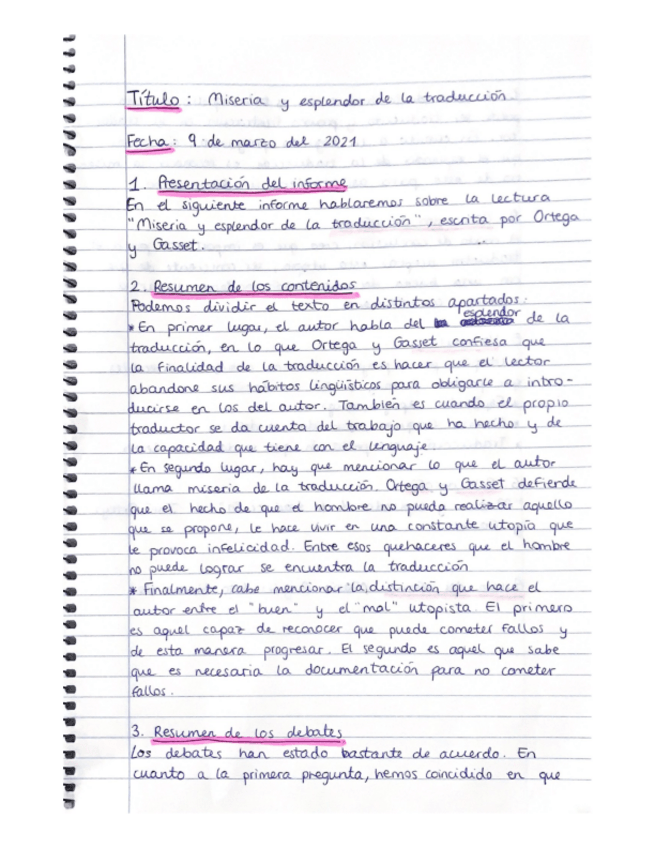 Título: Miseria y esplendor de la traducción
Fecha: 9 de marzo del 2021
1. Presentación del informe
En el siguiente informe hablaremos sobre la lectura
"Miseria y esplendor de la traducción", escrita por Ortega
y Gasset.
2. Resumen de los contenidos
Podemos dividir el texto en distintos apartados:
* En primer lugar, el autor habla del esplendor de la
traducción, en lo que Ortega y Gasset confiesa que
la finalidad de la traducción es hacer que el lector
abandone sus hábitos lingüísticos para obligarle a intro-
ducirse en los del autor. También es cuando el propio
traductor se da cuenta del trabajo que ha hecho y de
la capacidad que tiene con el lenguaje.
* En segundo lugar, hay que mencionar lo que el autor
llama miseria de la traducción. Ortega y Gasset defiende
que el hecho de que el hombre no pueda realizar aquello
que se propone, le hace vivir en una constante utopía que
le provoca infelicidad. Entre esos quehaceres que el hombre
no puede lograr se encuentra la traducción
* Finalmente, cabe mencionar la distinción que hace el
autor entre el "buen" y el "mal" utopista El primero
es aquel capaz de reconocer que puede cometer fallos y
de esta manera progresar. El segundo es aquel que sabe
que es necesaria la documentación para no cometer
fallos.
3. Resumen de los debates
Los debates han estado bastante de acuerdo. En
cuanto a la primera pregunta, hemos coincidido en que